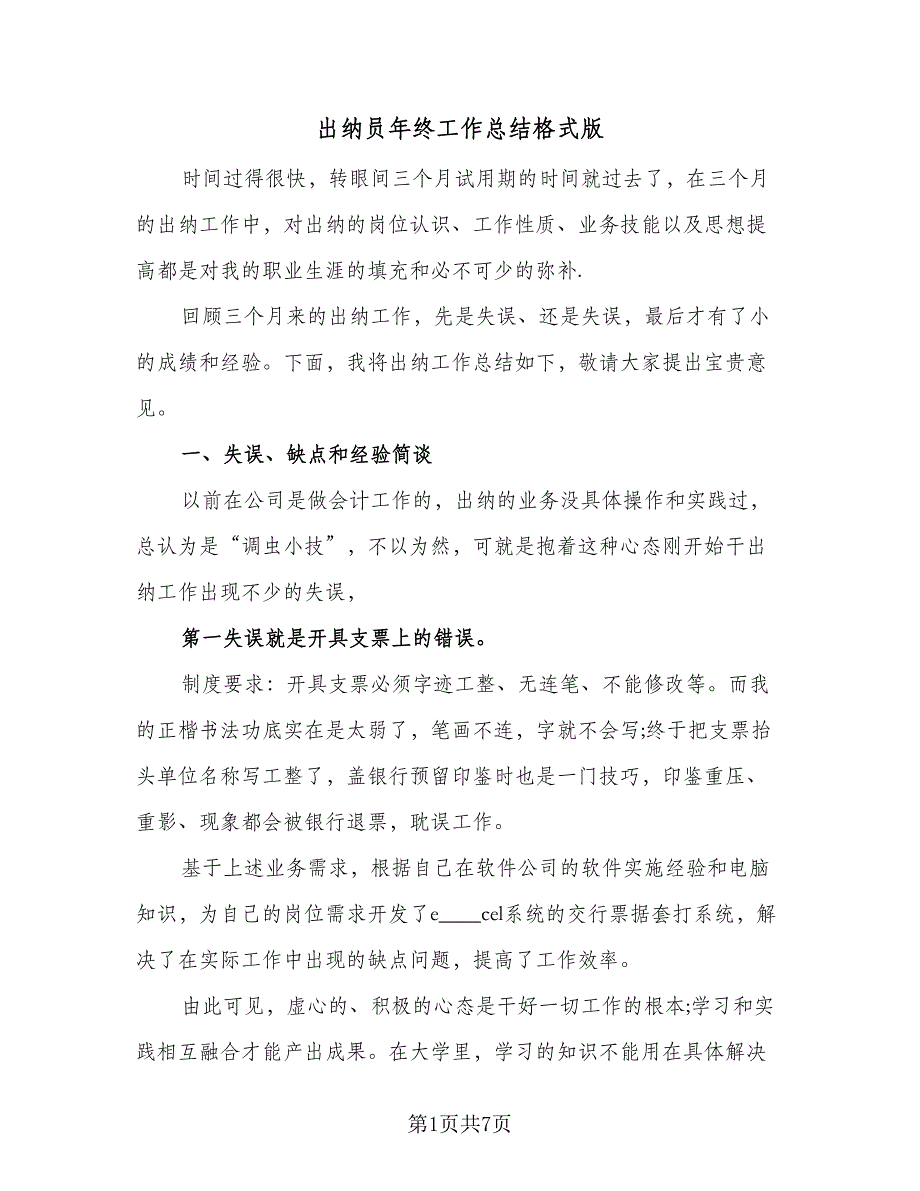 出纳员年终工作总结格式版
时间过得很快，转眼间三个月试用期的时间就过去了，在三个月
的出纳工作中，对出纳的岗位认识、工作性质、业务技能以及思想提
高都是对我的职业生涯的填充和必不可少的弥补.
回顾三个月来的出纳工作，先是失误、还是失误，最后才有了小
的成绩和经验。下面，我将出纳工作总结如下，敬请大家提出宝贵意
见。
一、失误、缺点和经验简谈
以前在公司是做会计工作的，出纳的业务没具体操作和实践过，
总认为是“调虫小技”，不以为然，可就是抱着这种心态刚开始干出
纳工作出现不少的失误，
第一失误就是开具支票上的错误。
制度要求：开具支票必须字迹工整、无连笔、不能修改等。而我
的正楷书法功底实在是太弱了，笔画不连，字就不会写;终于把支票抬
头单位名称写工整了，盖银行预留印鉴时也是一门技巧，印鉴重压、
重影、现象都会被银行退票，耽误工作。
基于上述业务需求，根据自己在软件公司的软件实施经验和电脑
知识，为自己的岗位需求开发了e____cel系统的交行票据套打系统，解
决了在实际工作中出现的缺点问题，提高了工作效率。
由此可见，虚心的、积极的心态是干好一切工作的根本;学习和实
践相互融合才能产出成果。在大学里，学习的知识不能用在具体解决
第1页共7页